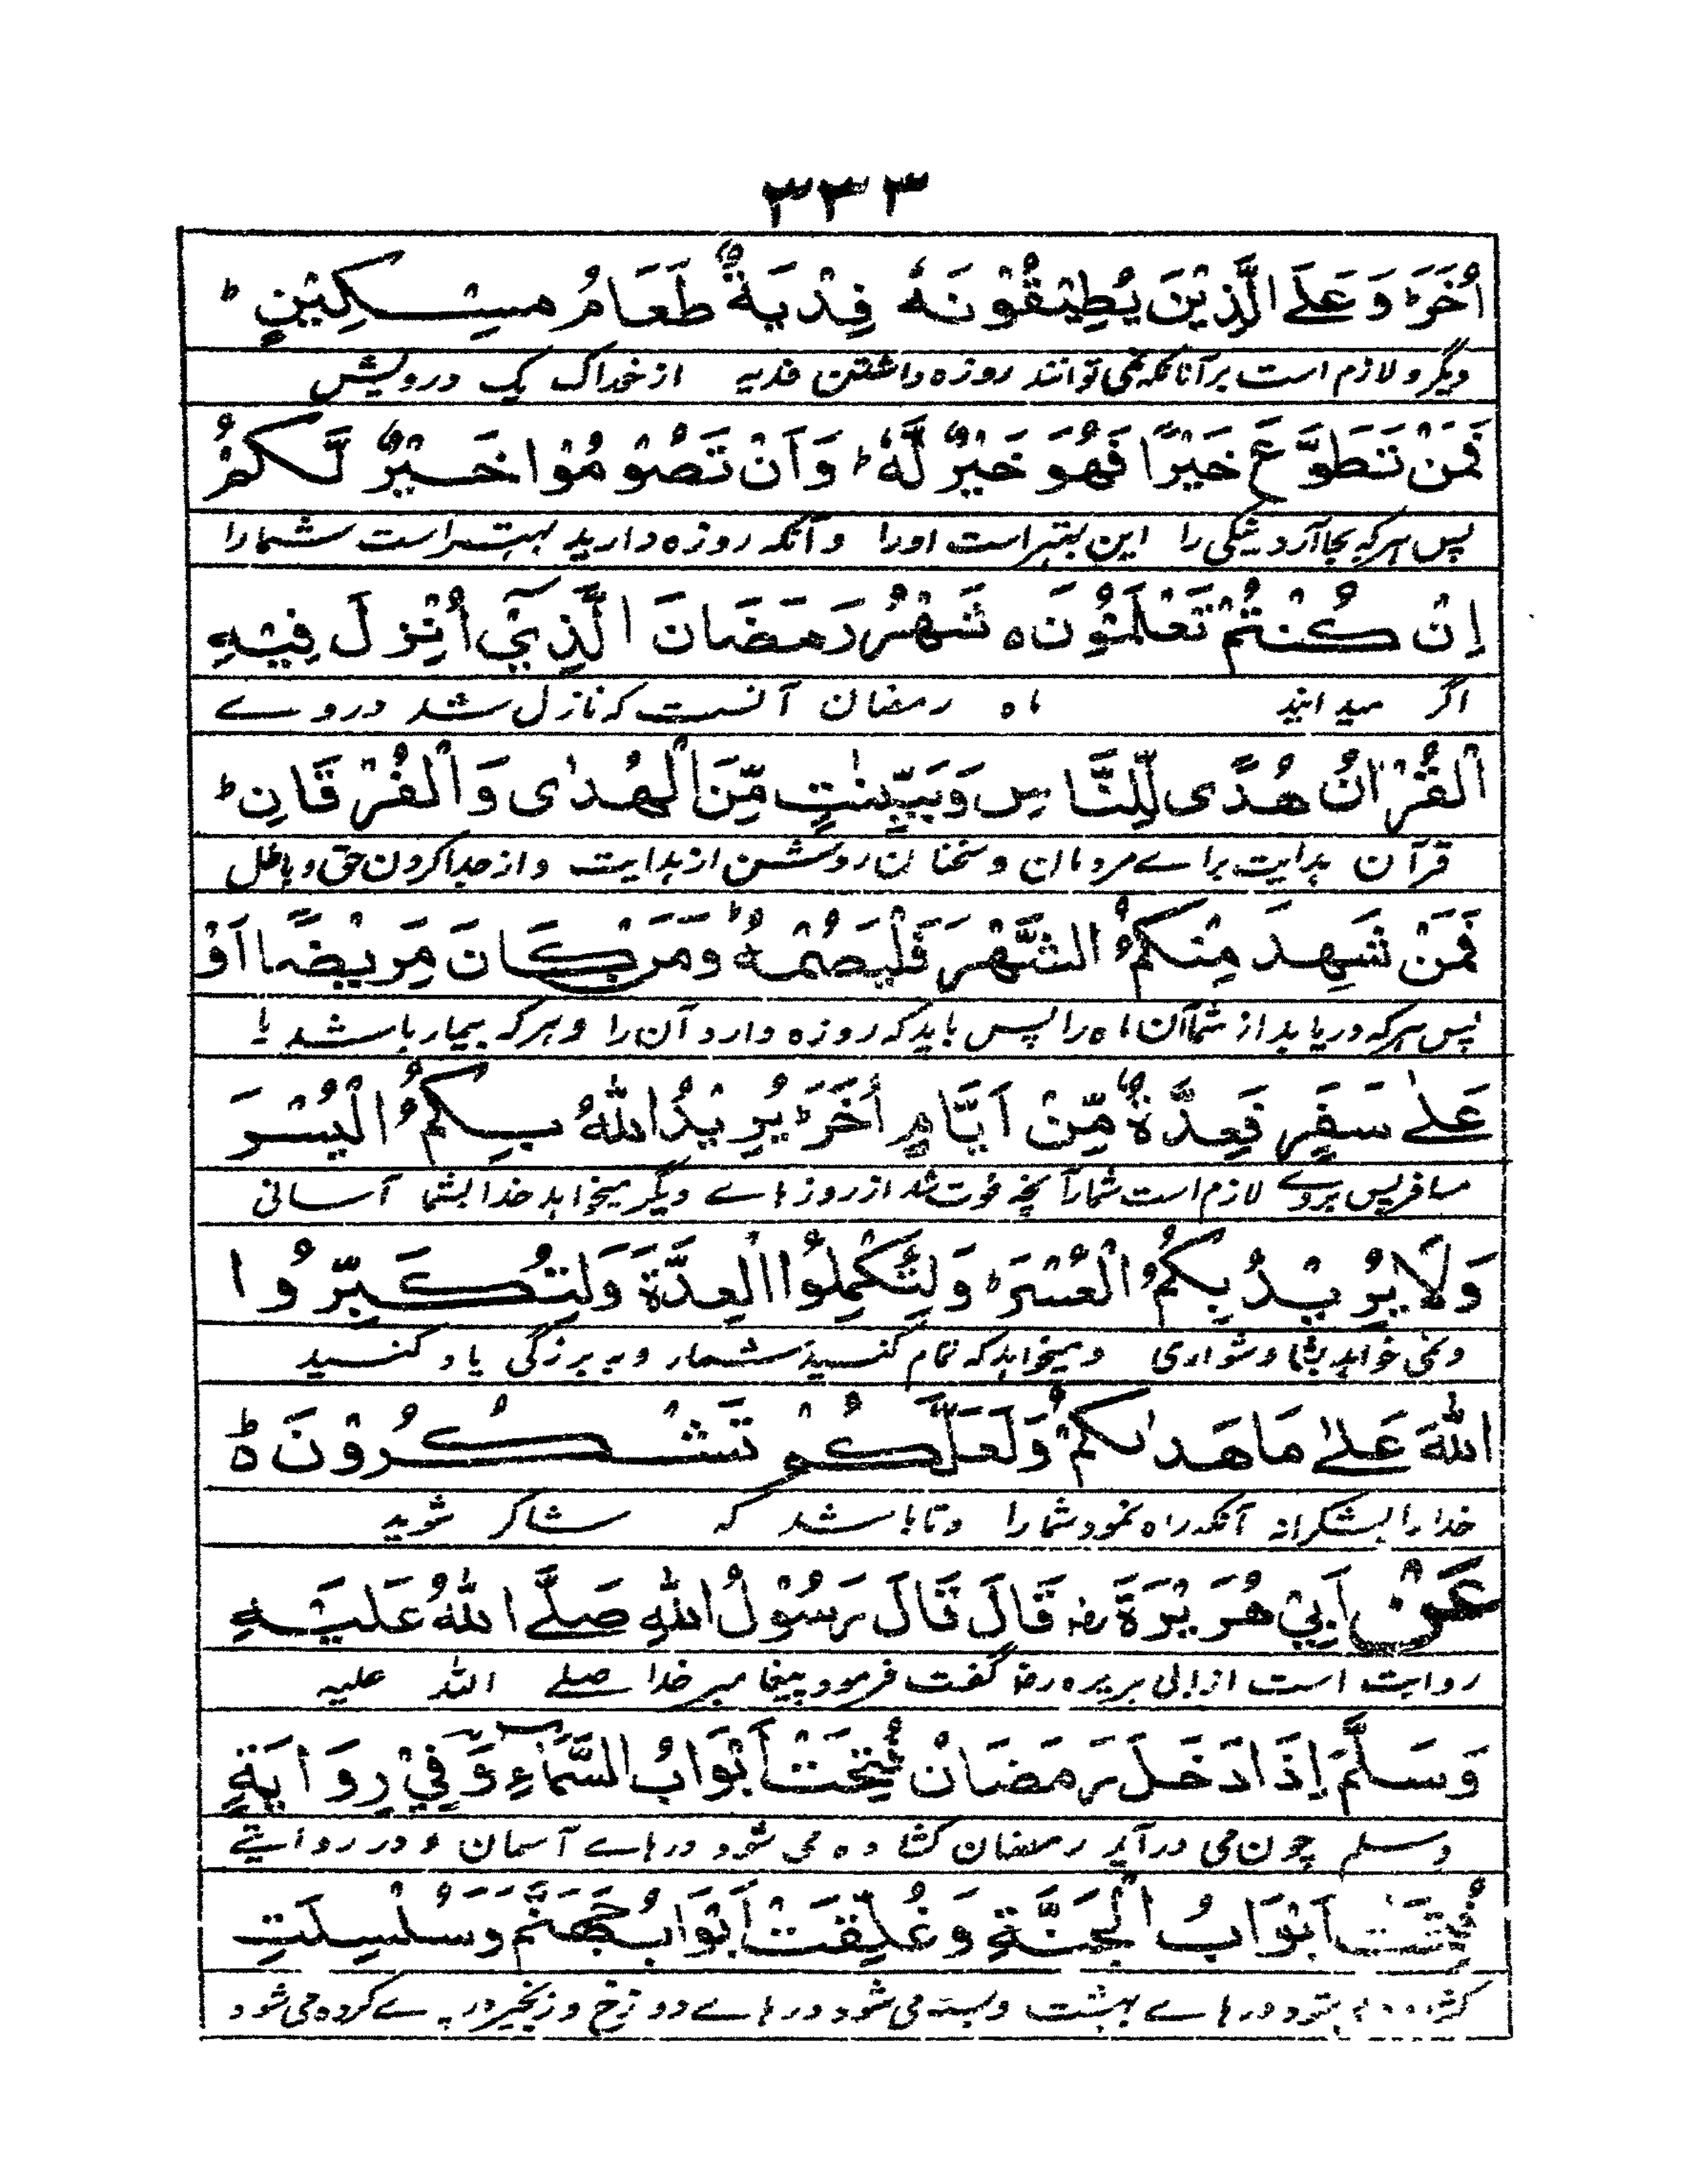 ٣٣٣
اُخَرَ ؕ وَ عَلَے الَّذِیْنَ یُطِیْقُوْنَہٗ فِدْیَۃٌ طَعَامُ مِسْکِیْنٍ ؕ
دیگر و لازم است بر آنانکہ نمی توانند روزہ داشتن فدیہ از خوراک یک درویش
فَمَنْ تَطَوَّعَ خَیْرًا فَھُوَ خَیْرٌ لَّہٗ ؕ وَ اَنْ تَصُوْمُوْا خَیْرٌ لَّکُمْ
پس ہر کہ بجا آرد نیکی را این بہتر است اورا و آنکہ روزہ دارید بہتر است شمارا
اِنْ کُنْتُمْ تَعْلَمُوْنَ ہ شَھْرُ رَمَضَانَ الَّذِیْٓ اُنْزِلَ فِیْہِ
اگر میدانید ماہ رمضان آنست کہ نازل شد در وے
الْقُرْاٰنُ ھُدًی لِّلنَّاسِ وَ بَیِّنٰتٍ مِّنَ الْھُدٰی وَ الْفُرْقَانِ ؕ
قرآن ہدایت براے مردمان و سخنان روشن از ہدایت و از جدا کردن حق و باطل
فَمَنْ شَھِدَ مِنْکُمُ الشَّھْرَ فَلْیَصُمْہُ ؕ وَ مَنْ کَانَ مَرِیْضًا اَوْ
پس ہر کہ دریابد از شما آن ماہ را پس باید کہ روزہ دارد آن را و ہر کہ بیمار باشد یا
عَلٰے سَفَرٍ فَعِدَّۃٌ مِّنْ اَیَّامٍ اُخَرَ ؕ یُرِیْدُ اللّٰہُ بِکُمُ الْیُسْرَ
مسافر پس بروے لازم است شمار آنچہ فوت شد از روزہاے دیگر میخواہد خدا بشما آسانی
وَ لَا یُرِیْدُ بِکُمُ الْعُسْرَ ؕ وَ لِتُکْمِلُوا الْعِدَّۃَ وَ لِتُکَبِّرُوا
و نمی خواہد بشما دشواری و میخواہد کہ تمام کنسید شمار و بہ بزرگی یاد کنسید
اللّٰہَ عَلٰے مَا ھَدٰىکُمْ وَ لَعَلَّکُمْ تَشْکُرُوْنَ ہ
خدا را بشکرانہ آنکہ راہ نمود شمارا و تا باشد کہ شاکر شوید
عَنْ اَبِیْ ھُرَیْرَۃَ رضہ قَالَ قَالَ رَسُوْلُ اللّٰہِ صَلَّے اللّٰہُ عَلَیْہِ
روایت است از ابی ہریرہ رضہ گفت فرمود پیغامبر خدا صلے اللہ علیہ
وَ سَلَّمَ اِذَا دَخَلَ رَمَضَانُ فُتِحَتْ اَبْوَابُ السَّمَآءِ وَ فِیْ رِوَایَۃٍ
و سلم چون می درآید رمضان کشادہ می شود درہاے آسمان و در روایتے
فُتِحَتْ اَبْوَابُ الْجَنَّۃِ وَ غُلِّقَتْ اَبْوَابُ جَھَنَّمَ وَ سُلْسِلَتِ
شود درہاے بہشت و بستہ می شود درہاے دوزخ و زنجیر در پے کردہ می شود